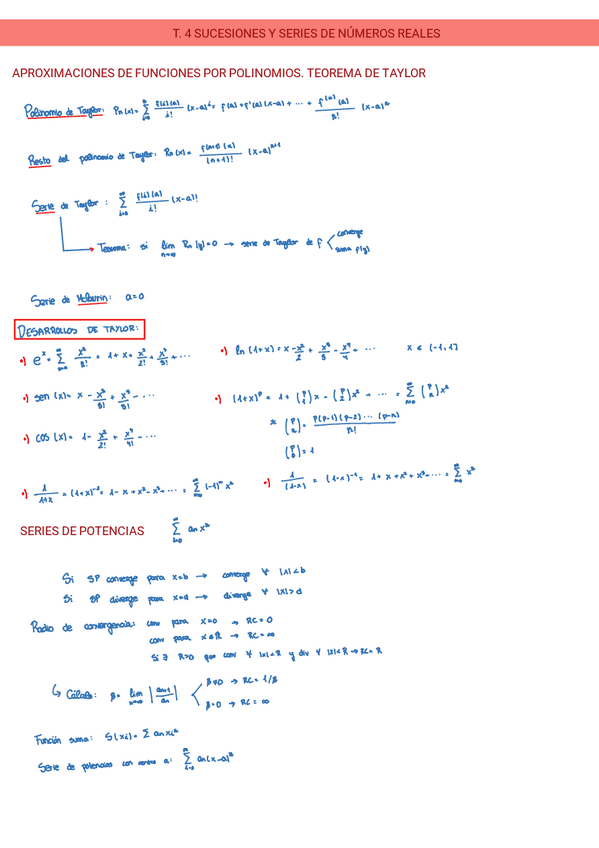 T. 4 SUCESIONES Y SERIES DE NÚMEROS REALES
APROXIMACIONES DE FUNCIONES POR POLINOMIOS. TEOREMA DE TAYLOR
Polinomio de Taylor: Pn(x) = ∑_{i=0}^{n} f(i)(a)/i! (x-a)^i = f(a) + f'(a)(x-a) + ... + f^(n)(a)/n! (x-a)^n
Resto del polinomio de Taylor: Rn(x) = f(n+1)(a)/(n+1)! (x-a)^{n+1}
Serie de Taylor: ∑_{i=0}^{∞} f(i)(a)/i! (x-a)^i
Teorema: si lim_{n→∞} Rn(y) = 0 → serie de Taylor de f < converge
suma f(y)
Serie de Mclaurin: a=0
DESARROLLOS DE TAYLOR:
•) e^x = ∑_{n=0}^{∞} x^n/n! = 1 + x + x²/2! + x³/3! + ... •) ln(1+x) = x - x²/2 + x³/3 - x⁴/4 + ... x ∈ (-1,1]
•) sen(x) = x - x³/3! + x⁵/5! - ... •) (1+x)^p = 1 + (p 1)x - (p 2)x² - ... = ∑_{n=0}^{∞} (p n) x^n
* (p n) = p(p-1)(p-2)...(p-n)/n!
•) cos(x) = 1 - x²/2! + x⁴/4! - ...
(p 0) = 1
•) 1/(1+x) = (1+x)^{-1} = 1 - x + x² - x³ ... = ∑_{n=0}^{∞} (-1)^n x^n •) 1/(1-x) = (1-x)^{-1} = 1 + x + x² + x³ ... = ∑_{n=0}^{∞} x^n
SERIES DE POTENCIAS ∑_{i=0}^{∞} an x^n
Si SP converge para x=b → converge ∀ |x|<b
Si SP diverge para x=d → diverge ∀ |x|>d
Radio de convergencia: conv para x=0 → RC=0
conv para x∈R → RC=∞
Si ∃ R>0 que conv ∀ |x|<R y div ∀ |x|<R → RC=R
↳ Cálculo: β = lim_{n→∞} |an+1/an| < β≠0 → RC = 1/β
β=0 → RC = ∞
Función suma: S(xi) = ∑ an xi^n
Serie de potencias con centro a: ∑_{i=0}^{∞} an(x-a)^n